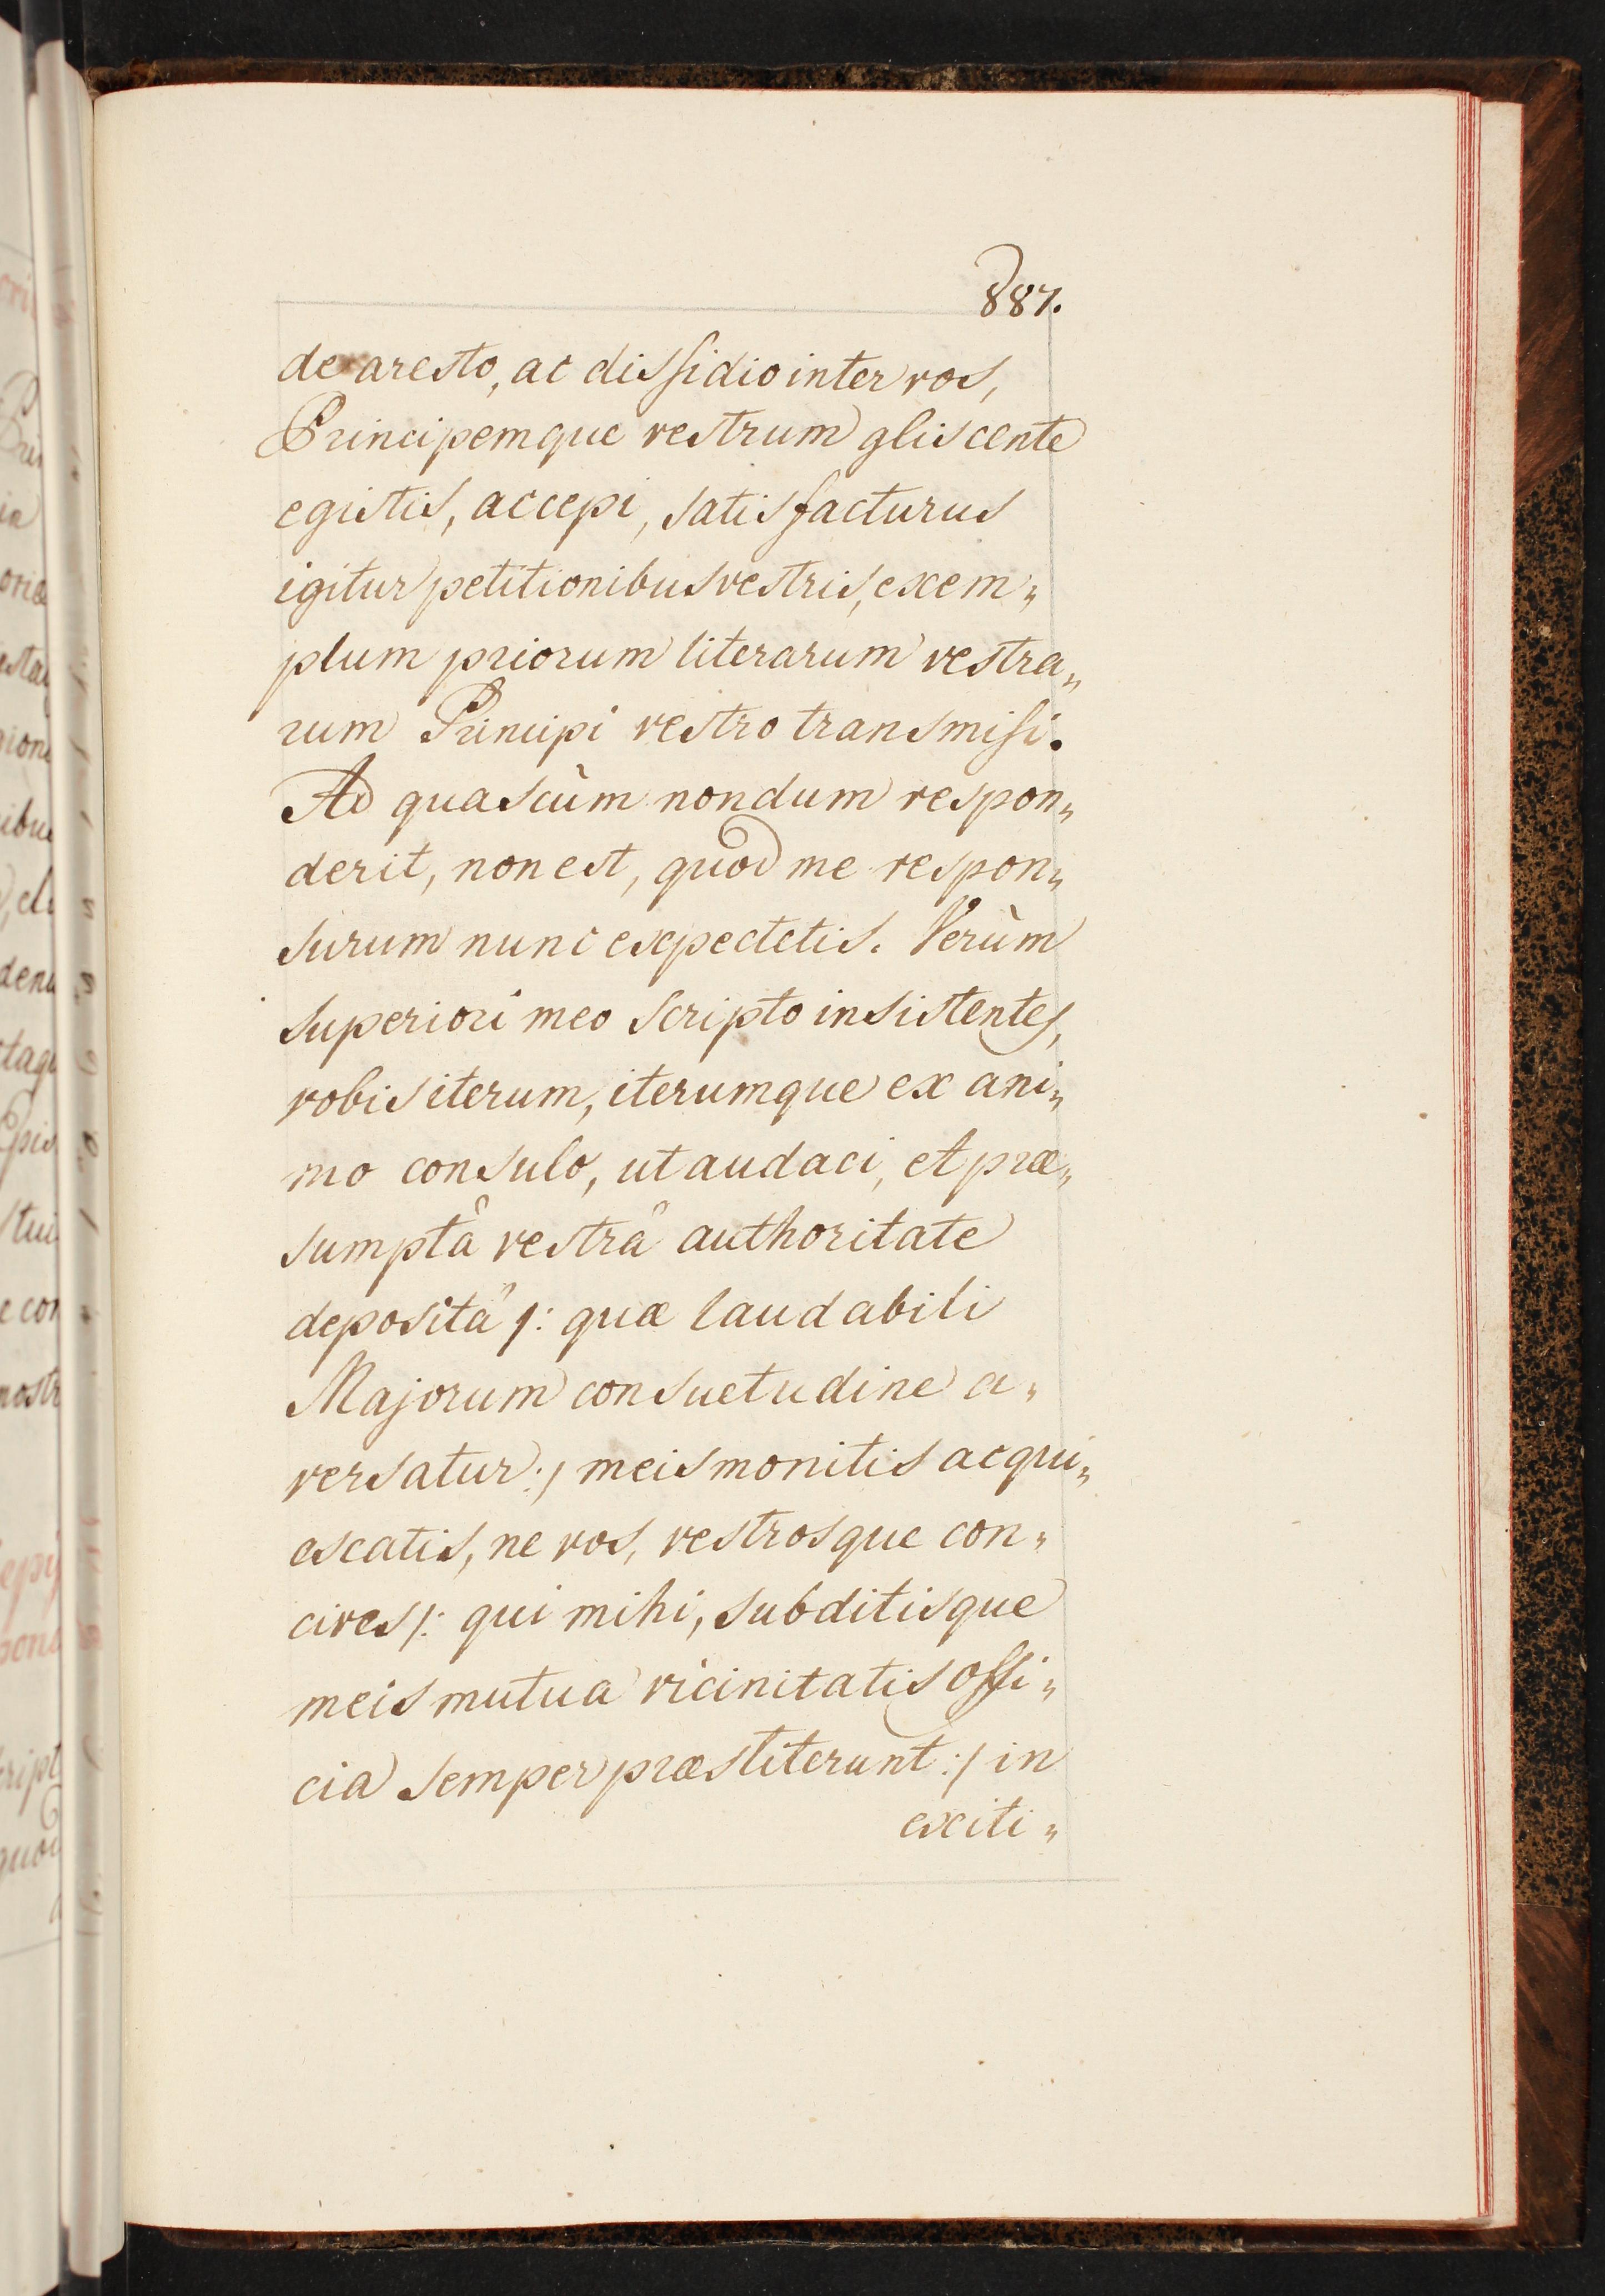 887.
de aresto, ac dissidio inter vos,
Principemque vestrum gliscente
egistis, accepi, satisfacturus
igitur petitionibus vestris, exem„
plum priorum literarum vestra„
rum Principi vestro transmisi.
Ad quas cùm nondum respon„
derit, non est, quod me respon„
surum nunc expectetis. Verùm
superiori meo scripto insistentes,
vobis iterum, iterumque ex ani„
mo consulo, ut audaci, et præ„
sumptâ vestrâ authoritate
depositâ /: quæ laudabili
Majorum consuetudine a„
versatur :/ meis monitis acqui„
escatis, ne vos, vestrosque con„
cives /: qui mihi, subditisque
meis mutua vicinitatis offi„
cia semper præstiterunt :/ in
exiti„